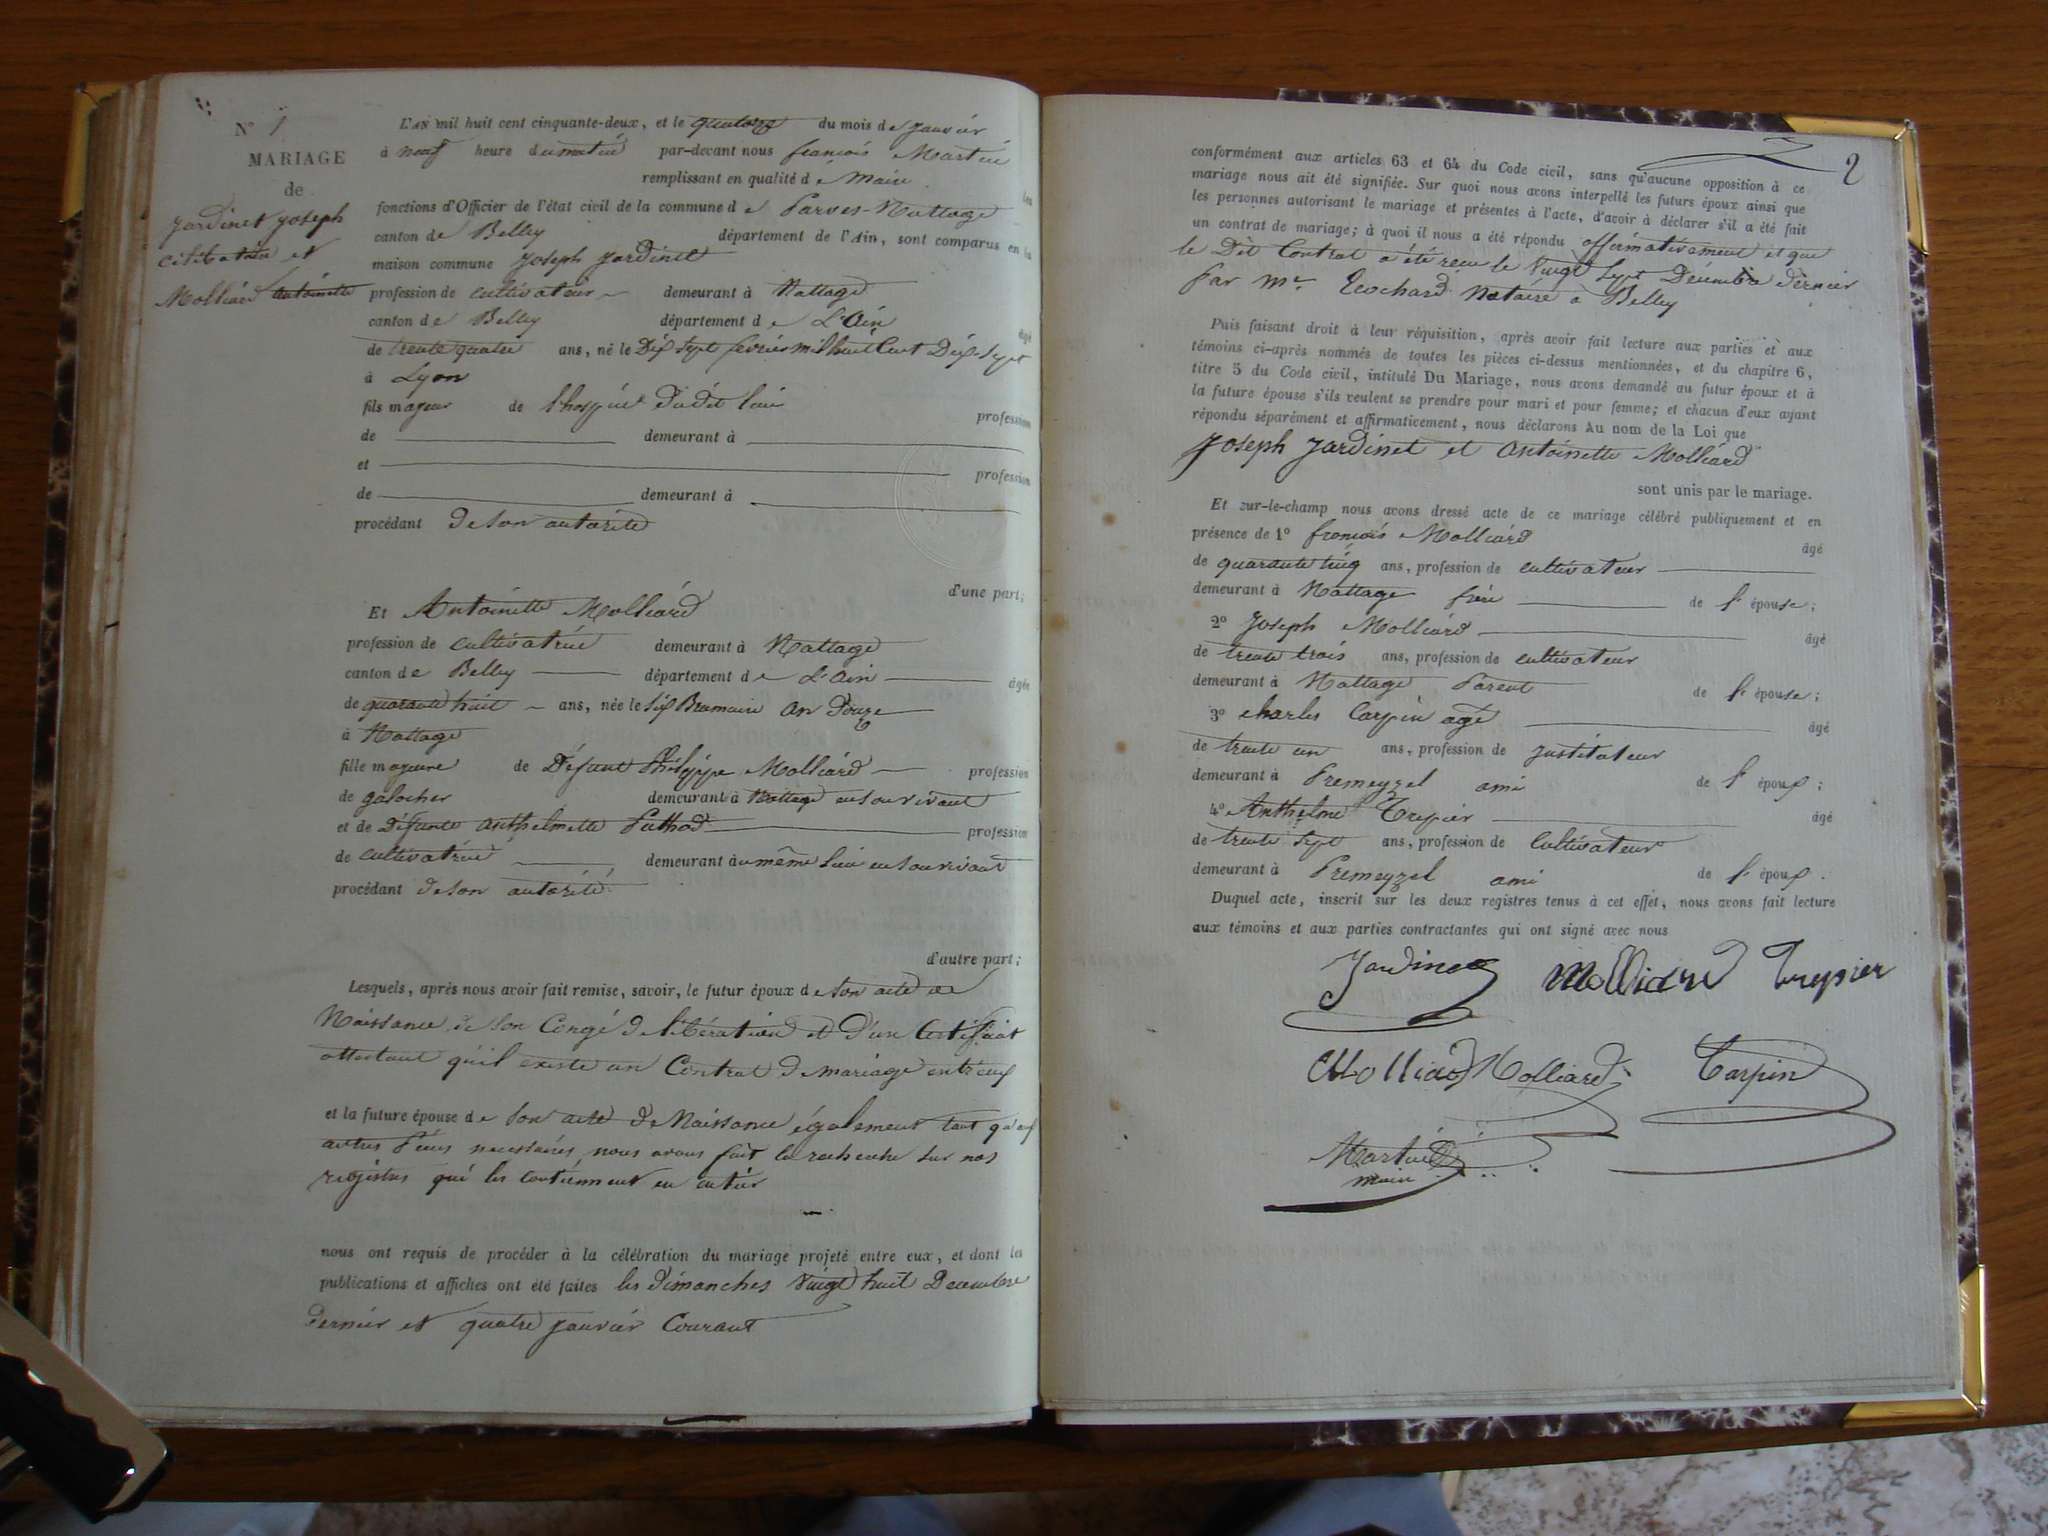 N° 1
MARIAGE
de
Jardinet Joseph
célibataire et
Molliard Antoinette
L'AN mil huit cent cinquante-deux, et le quatorze du mois de janvier
à neuf heure du matin par-devant nous françois Martin
remplissant en qualité de Maire les
fonctions d'Officier de l'état civil de la commune de Parves-Nattage
canton de Belley département de l'Ain, sont comparus en la
maison commune Joseph Jardinet
profession de cultivateur demeurant à Nattage
canton de Belley département de L'Ain âgé
de trente quatre ans, né le Dix sept février mil huit Cent Dix-Sept
à Lyon
fils majeur de l'hospice dudit lieu profession
de demeurant à
et profession
de demeurant à
procédant de son autorité
d'une part;
Et Antoinette Molliard
profession de cultivatrice demeurant à Nattage
canton de Belley département de L'Ain âgée
de quarante huit ans, née le six Brumaire An Douze
à Nattage
fille majeure de Défunt Philippe Molliard profession
de galocher demeurant à Nattage en son vivant
et de Défunte Anthelmette Puthod profession
de cultivatrice demeurant au même lieu en son vivant
procédant de son autorité
d'autre part;
Lesquels, après nous avoir fait remise, savoir, le futur époux de son acte de
Naissance, de son Congé de libération et D'un Certificat
attestant qu'il existe un Contrat de mariage entr'eux
et la future épouse de son acte de Naissance également tant qu'aux
autres Pièces necessaires, nous avons fait la recherche sur nos
régistres qui les contiennent en entier
nous ont requis de procéder à la célébration du mariage projeté entre eux, et dont les
publications et affiches ont été faites les dimanches vingt huit Decembre
dernier et quatre janvier Courant
2
conformément aux articles 63 et 64 du Code civil, sans qu'aucune opposition à ce
mariage nous ait été signifiée. Sur quoi nous avons interpellé les futurs époux ainsi que
les personnes autorisant le mariage et présentes à l'acte, d'avoir à déclarer s'il a été fait
un contrat de mariage; à quoi il nous a été répondu affirmativement et que
le Dit Contrat a été recu le vingt sept Décembre dernier
Par Me Notaire à Belley
Puis faisant droit à leur réquisition, après avoir fait lecture aux parties et aux
témoins ci-après nommés de toutes les pièces ci-dessus mentionnées, et du chapitre 6,
titre 5 du Code civil, intitulé Du Mariage, nous avons demandé au futur époux et à
la future épouse s'ils veulent se prendre pour mari et pour femme; et chacun d'eux ayant
répondu séparément et affirmativement, nous déclarons Au nom de la Loi que
Joseph Jardinet et Antoinette Molliard
sont unis par le mariage.
Et sur-le-champ nous avons dressé acte de ce mariage célébré publiquement et en
présence de 1° françois Molliard âgé
de quarante cinq ans, profession de cultivateur
demeurant à Nattage frère de l'épouse;
2° Joseph Molliard âgé
de trente trois ans, profession de cultivateur
demeurant à Nattage Parent de l'épouse;
3° charles Carpin agé âgé
de trente un ans, profession de justituteur
demeurant à Premeyzel ami de l'époux;
4° Anthelme Trepier âgé
de trente sept ans, profession de Cultivateur
demeurant à Premeyzel ami de l'époux.
Duquel acte, inscrit sur les deux registres tenus à cet effet, nous avons fait lecture
aux témoins et aux parties contractantes qui ont signé avec nous
Jardinet Molliard Trepier
Molliard Molliard Carpin
Martin
maire